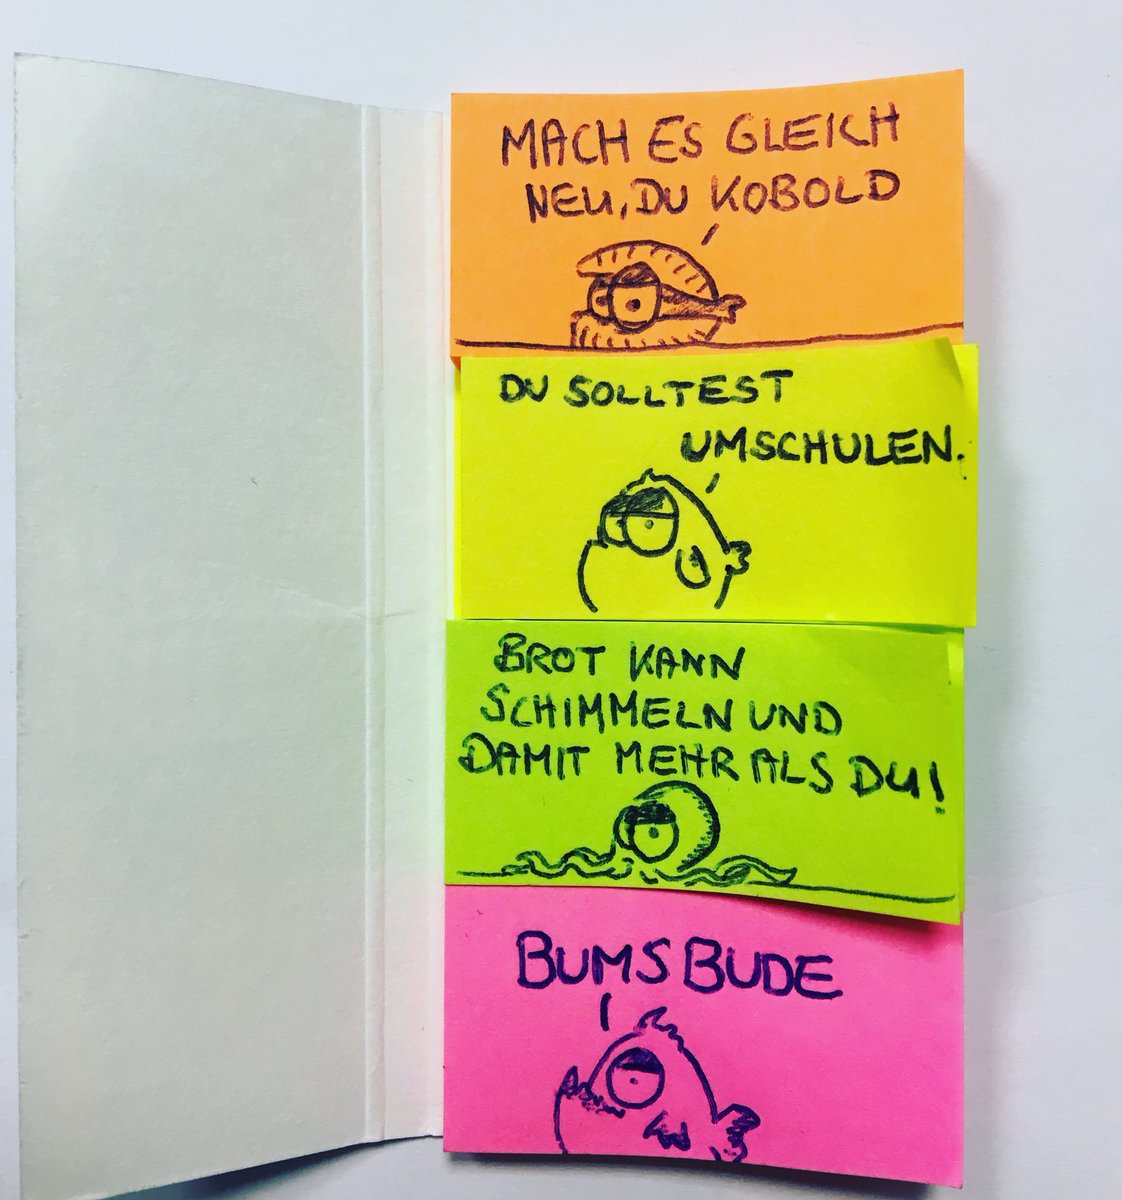 MACH ES GLEICH
NEU, DU KOBOLD
DU SOLLTEST
UMSCHULEN.
BROT KANN
SCHIMMELN UND
DAMIT MEHR ALS DU!
BUMSBUDE